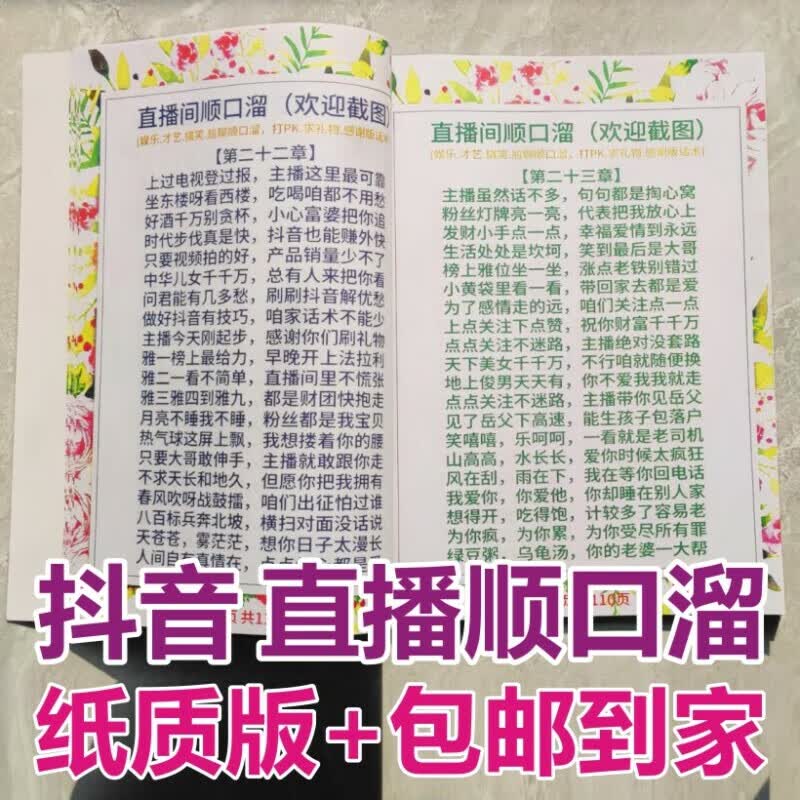 直播间顺口溜（欢迎截图）
(娱乐.才艺.搞笑.尬聊顺口溜，打PK.求礼物.感谢版话术)
【第二十二章】
上过电视登过报，主播这里最可靠
坐东楼呀看西楼，吃喝咱都不用愁
好酒千万别贪杯，小心富婆把你追
时代步伐真是快，抖音也能赚外快
只要视频拍的好，产品销量少不了
中华儿女千千万，总有人来把你看
问君能有几多愁，刷刷抖音解忧愁
做好抖音有技巧，咱家话术不能少
主播今天刚起步，感谢你们刷礼物
雅一榜上最给力，早晚开上法拉利
雅二一看不简单，直播间里不慌张
雅三雅四到雅九，都是财团快抱走
月亮不睡我不睡，粉丝都是我宝贝
热气球这屏上飘，我想搂着你的腰
只要大哥敢伸手，主播就敢跟你走
不求天长和地久，但愿你把我拥有
春风吹呀战鼓擂，咱们出征怕过谁
八百标兵奔北坡，横扫对面没话说
天苍苍，雾茫茫，想你日子太漫长
人间自有真情在，点点
页 共11
直播间顺口溜（欢迎截图）
(娱乐.才艺.搞笑.尬聊顺口溜，打PK.求礼物.感谢版话术)
【第二十三章】
主播虽然话不多，句句都是掏心窝
粉丝灯牌亮一亮，代表把我放心上
发财小手点一点，幸福爱情到永远
生活处处是坎坷，笑到最后是大哥
榜上雅位坐一坐，涨点老铁别错过
小黄袋里看一看，带回家去都是爱
为了感情走的远，咱们关注点一点
上点关注下点赞，祝你财富千千万
点点关注不迷路，主播绝对没套路
天下美女千千万，不行咱就随便换
地上俊男天天有，你不爱我我就走
点点关注不迷路，主播带你见岳父
见了岳父下高速，能生孩子包落户
笑嘻嘻，乐呵呵，一看就是老司机
山高高，水长长，爱你时候太疯狂
风在刮，雨在下，我在等你回电话
我爱你，你爱他，你却睡在别人家
想得开，吃得饱，计较多了容易老
为你疯，为你累，为你受尽所有罪
绿豆粥，乌龟汤，你的老婆一大帮
110页
抖音 直播顺口溜
纸质版+包邮到家